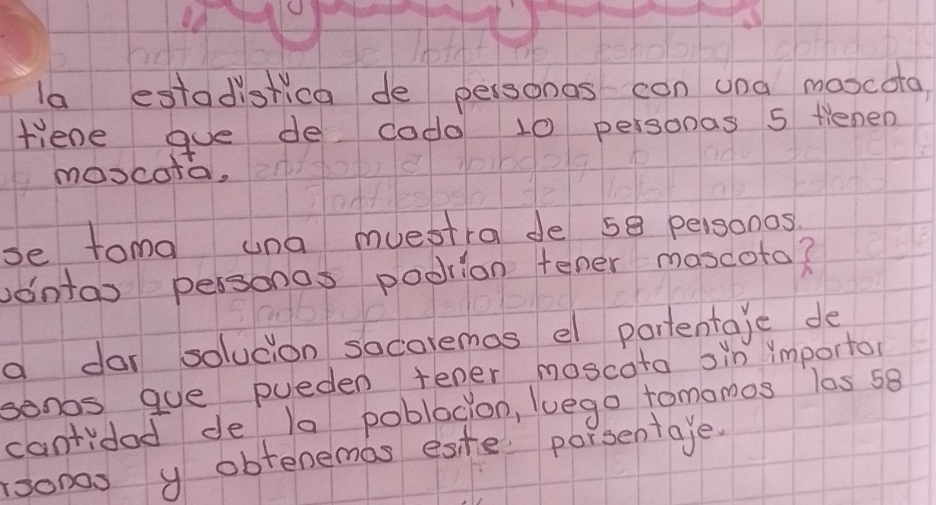 la estadistica de personas con una mascota,
tiene que de cada 10 personas 5 tienen
mascota.
se toma una muestra de 58 personas.
uántas personas podrian tener mascota?
a dar solucion sacaremos el portentaje de
sonas que pueden tener mascota sin importar
cantidad de la poblacion, luego tomamos las 58
rsonas y obtenemas este porsentaje.